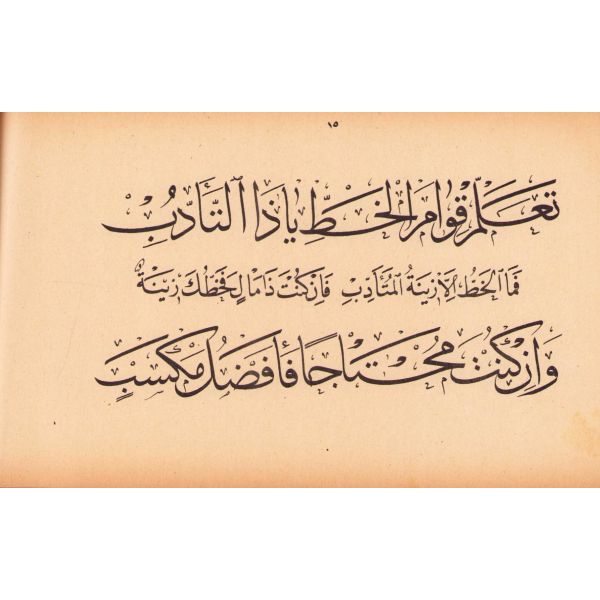 ١٥
تَعَلَّمْ قِوَامَ الْخَطِّ يَا ذَا التَّأَدُّبِ
فَمَا الْخَطُّ اِلَّا زِينَةُ الْمُتَأَدِّبِ فَاِنْ كُنْتَ ذَا مَالٍ فَخَطُّكَ زِينَةٌ
وَاِنْ كُنْتَ مُحْتَاجًا فَأَفْضَلُ مَكْسَبِ